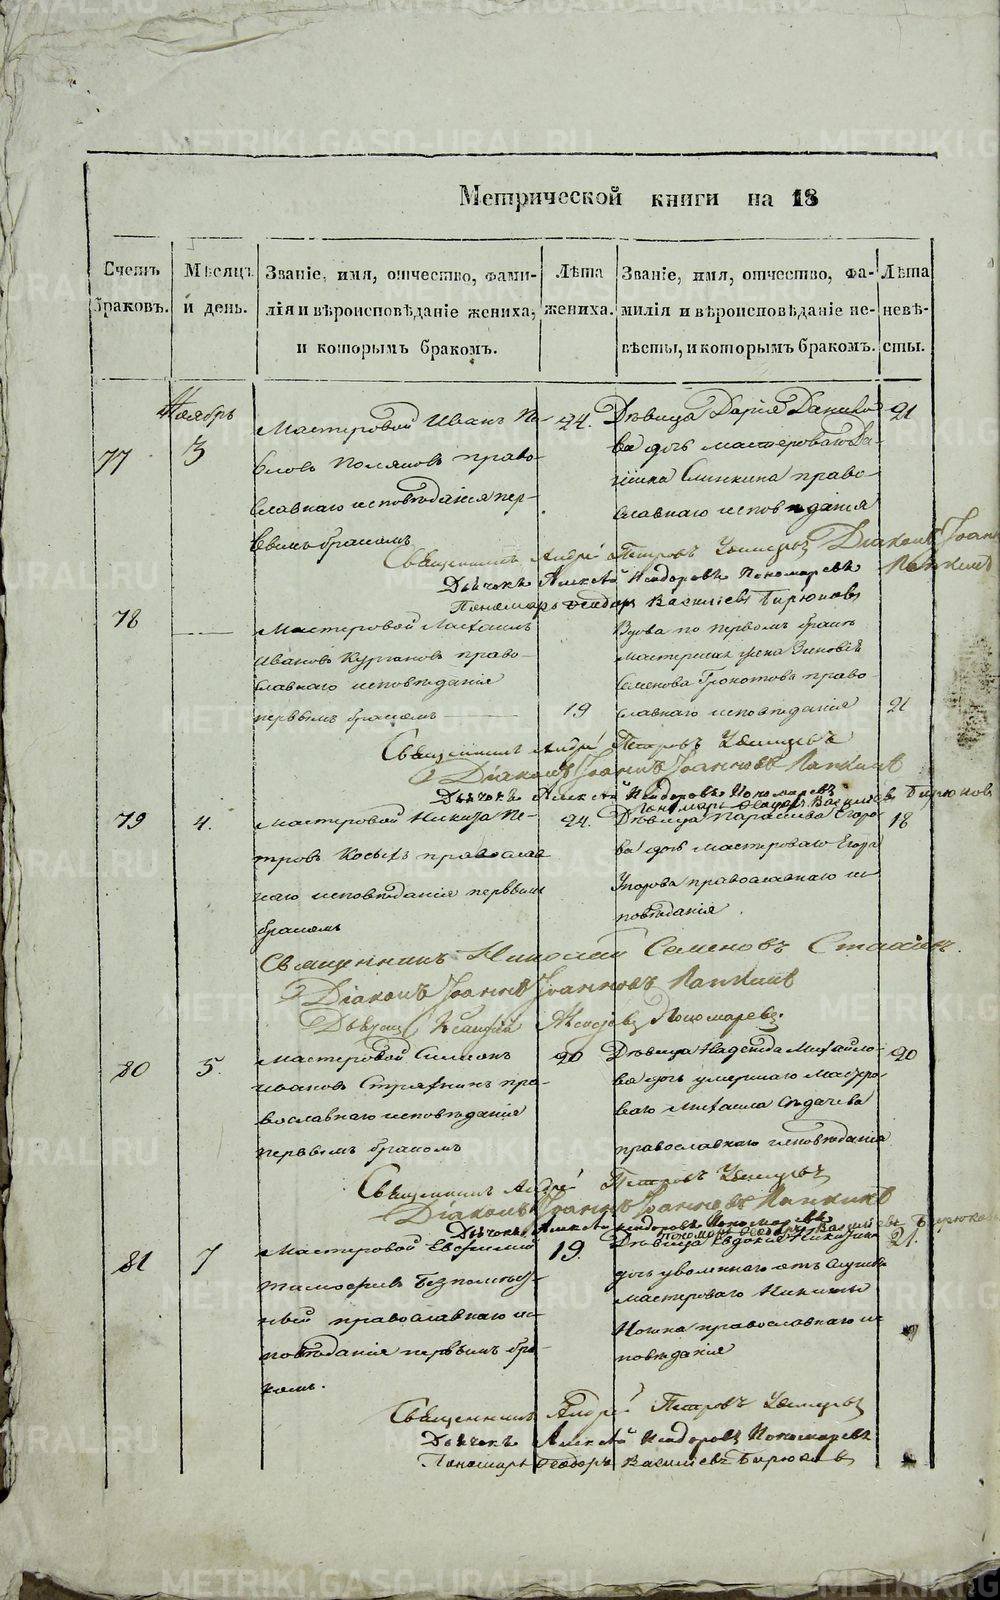 Метрической книги на 18
Счетъ браковъ.
Мѣсяцъ и день.
Званіе, имя, отчество, фами-
лія и вѣроисповѣданіе жениха,
и которымъ бракомъ.
Лѣта жениха.
Званіе, имя, отчество, фа-
милія и вѣроисповѣданіе не-
вѣсты, и которымъ бракомъ.
Лѣта невѣ-
сты.
Ноябрь
77
3
Мастеровой Иванъ
Поляковъ право-
славнаго исповѣданія пер-
вымъ бракомъ
24.
Дѣвица Дарія Данило
ва дочь мастероваго Да-
право-
славнаго исповѣданія
21
Священникъ Андрей Петровъ
Діаконъ Іоаннъ
Дьячекъ Алексѣй Исидоровъ Пономаревъ
Пономарь Феодоръ Василіевъ Бирюковъ
78
Мастеровой Михаилъ
Ивановъ Кургановъ право-
славнаго исповѣданія
первымъ бракомъ
19
Вдова по первомъ бракѣ
мастерская жена Зиновія
Семенова право
славнаго исповѣданія
21
Священникъ Андрей Петровъ
Діаконъ Іоаннъ Іоанновъ
Дьячекъ Алексѣй Исидоровъ Пономаревъ
Пономарь Феодоръ Василіевъ Бирюковъ
79
4.
Мастеровой Никита Пе-
тровъ Косыхъ православ
наго исповѣданія первымъ
бракомъ
24.
Дѣвица Параскева Егоро-
ва дочь мастероваго Егора
православнаго ис
повѣданія
18
Священникъ Николай Семеновъ
Діаконъ Іоаннъ Іоанновъ
Пономаревъ.
80
5.
Мастеровой Симеонъ
Ивановъ Стряхнинъ пра-
вославнаго исповѣданія
первымъ бракомъ
20
Дѣвица Надежда Михайло-
ва дочь умершаго Мастро-
ваго Михаила
православнаго исповѣданія
20
Священникъ Андрей Петровъ
Діаконъ Іоаннъ Іоанновъ
Дьячекъ Алексѣй Исидоровъ Пономаревъ
Пономарь Феодоръ Василіевъ Бирюковъ
81
7
Мастеровой Евфимій
Тимофеевъ
православнаго ис-
повѣданія первымъ бра-
комъ.
19.
Дѣвица Евдокія Никитина
дочь уволеннаго отъ службы
мастероваго Никиты
православнаго ис
повѣданія
21.
Священникъ Андрей Петровъ
Дьячекъ Алексѣй Исидоровъ Пономаревъ
Пономарь Феодоръ Василіевъ Бирюковъ
METRIKI.GASO-URAL.RU